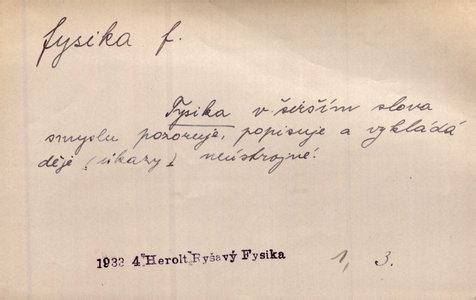 fysika f.
Fysika v širším slova
smyslu pozoruje, popisuje a vykládá
děje (úkazy) neústrojné.
1933 4° Herolt, Ryšavý Fysika 1, 3.